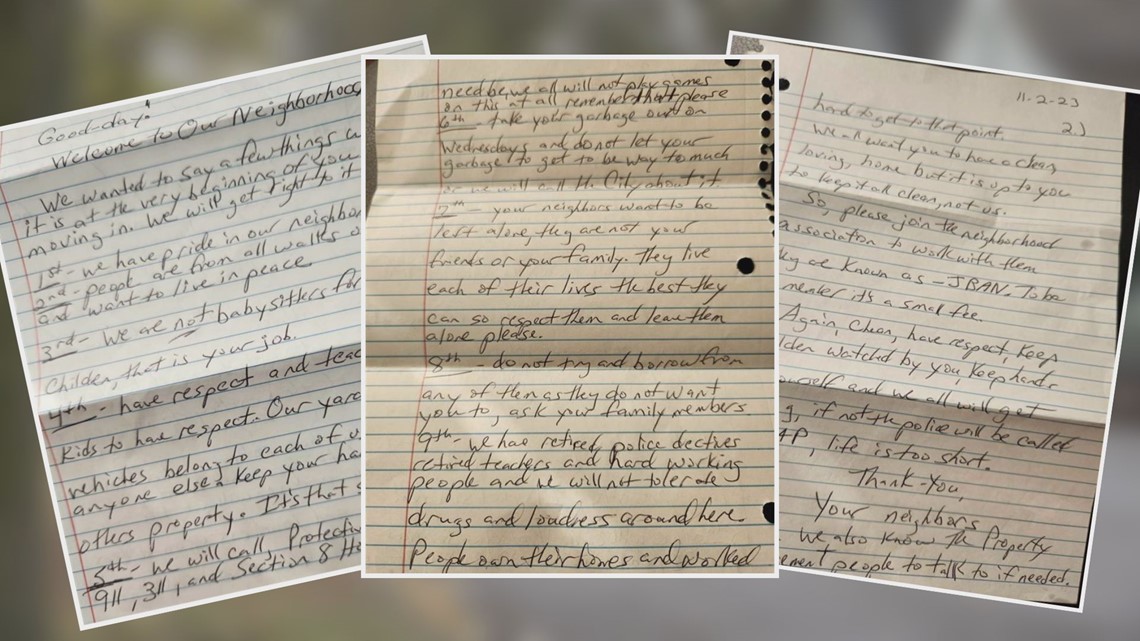 Good-day!
Welcome to Our Neighborhood
We wanted to say a few things
it is at the very beginning of you
moving in. We will get right to it
1st - we have pride in our neighbor
2nd - people are from all walks o
and want to live in peace
3rd - We are not babysitters for
Childen, that is your job.
4th - have respect and teac
Kids to have respect. Our yard
vehicles belong to each of u
anyone else. Keep your ha
others property. It's that s
5th - we will call, Protectiv
911, 311, and Section 8 Ho
need be, we all will not play games
on this at all remember that please
6th - take your garbage out on
Wednesdays and do not let your
garbage to get to be way to much
or we will call the City about it.
7th - your neighbors want to be
left alone, they are not your
friends or your family. They live
each of their lives the best they
can so respect them and leave them
alone please.
8th - do not try and borrow from
any of them as they do not want
you to, ask your family members.
9th - we have retired police dectives
retired teachers and hard working
people and we will not tolerate
drugs and loudness around here.
People own their homes and worked
11-2-23
2)
hard to get to that point.
We all want you to have a clean,
loving, home but it is up to you
to keep it all clean, not us.
So, please join the neighborhood
association to work with them
They are known as - JBAN. To be
member it's a small fee.
Again, Clean, have respect, Keep
lden watched by you, Keep hands
ourself and we all will get
g, if not the police will be called
AP, life is too short.
Thank-You,
Your neighbors
We also know the Property
ement people to talk to if needed.